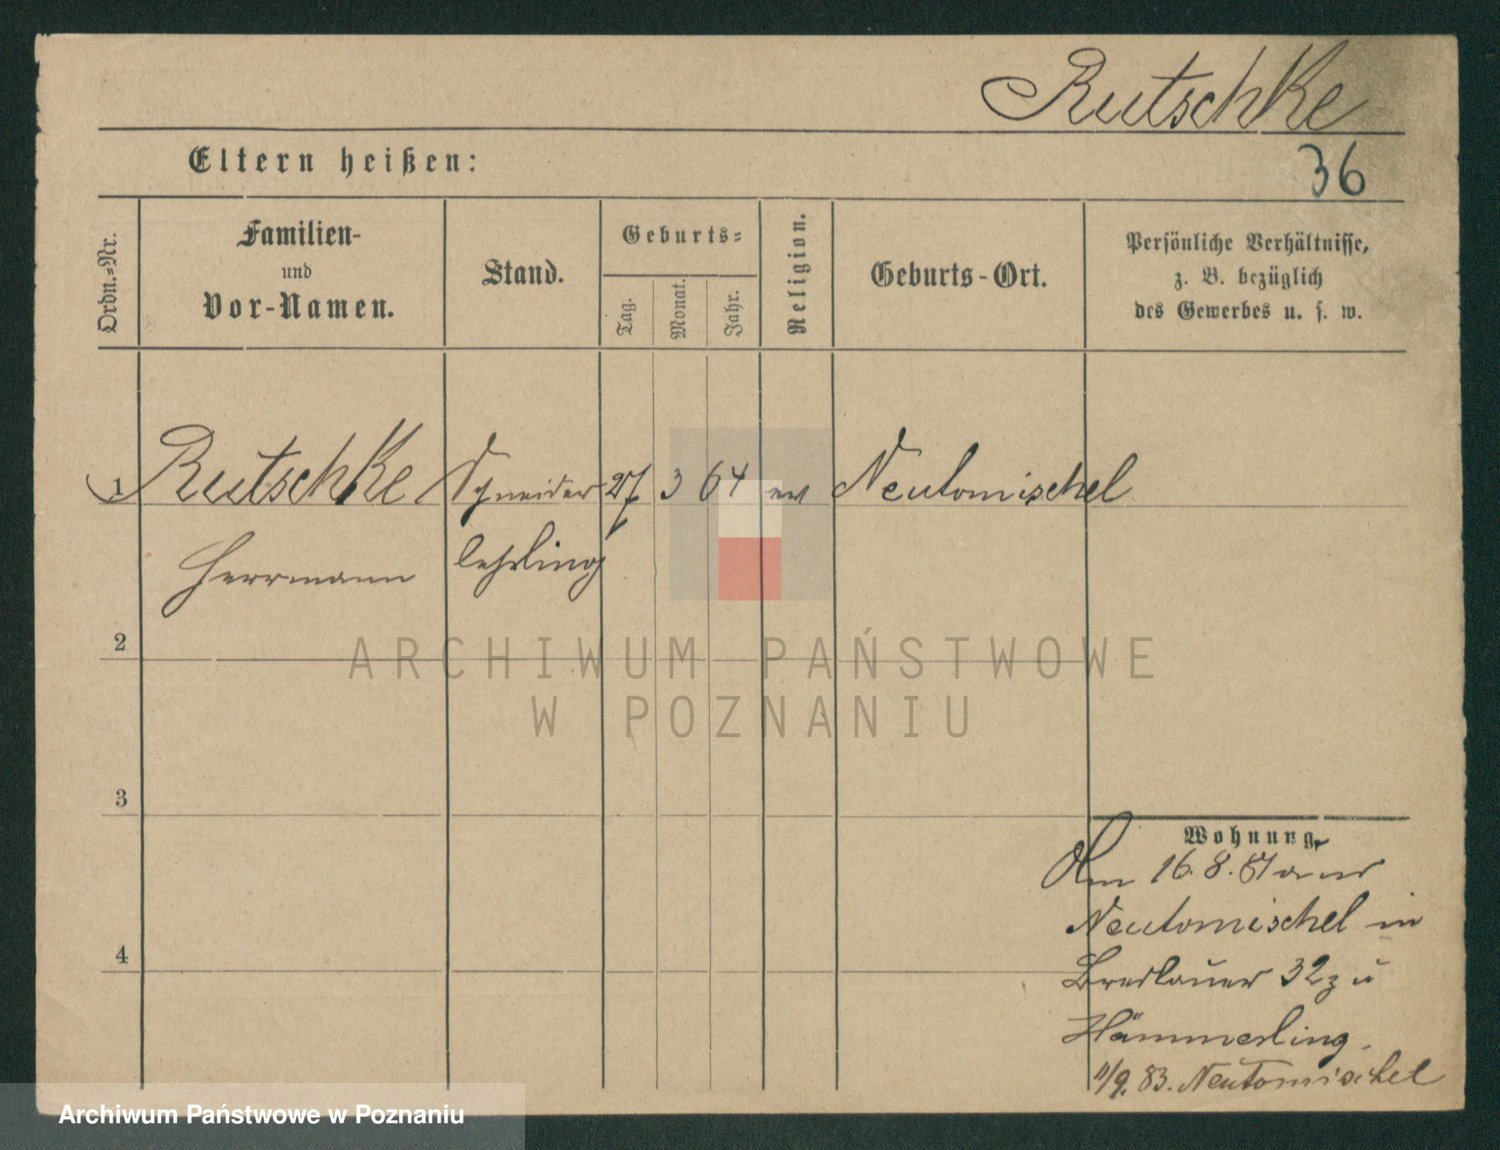 Rutschke
Eltern heißen:
36
Ordn.=Nr.
Familien-
und
Vor-Namen.
Stand.
Geburts=
Tag.
Monat.
Jahr.
Religion.
Geburts-Ort.
Persönliche Verhältnisse,
z. B. bezüglich
des Gewerbes u. s. w.
1 Rutschke Schneider 27 3 64 ev Neutomischel
Herrmann lehrling
2
3
4
Wohnung.
Am 16. 8. 81 aus
Neutomischel in
Breslauer 32 zu
Hämmerling.
11/9. 83. Neutomischel
ARCHIWUM PAŃSTWOWE
W POZNANIU
Archiwum Państwowe w Poznaniu